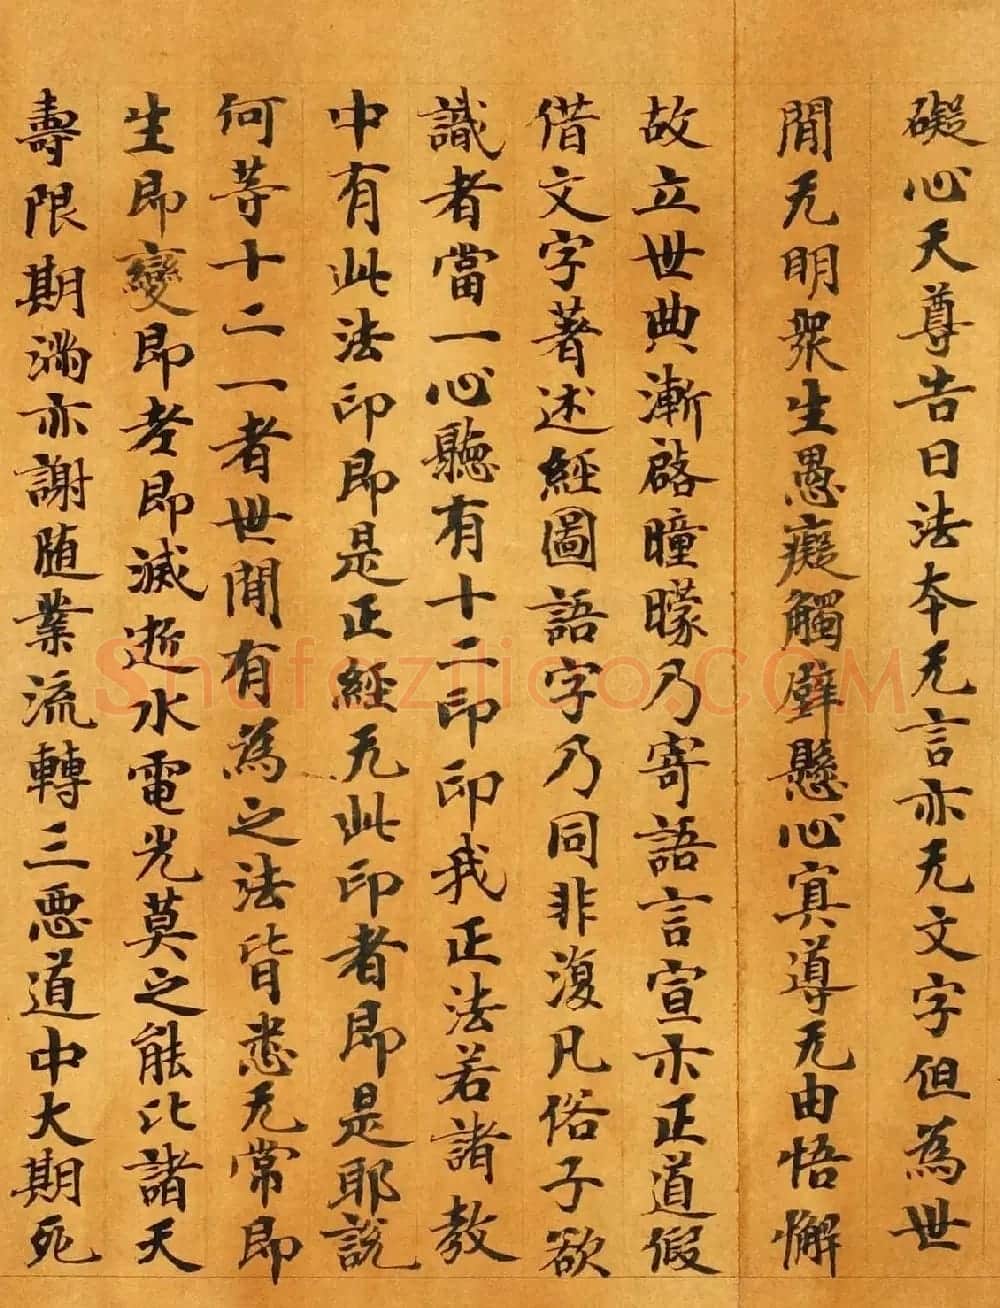 礙心天尊告曰法本无言亦无文字但為世
間无明眾生愚癡觸壁懸心寘導无由悟懈
故立世典漸啓曈曚乃寄語言宣示正道假
借文字著述經圖語字乃同非復凡俗子欲
識者當一心聽有十二印印我正法若諸教
中有此法印即是正經无此印者即是耶說
何等十二一者世間有為之法皆悉无常即
生即變即老即滅逝水電光莫之能比諸天
壽限期滿亦謝随業流轉三惡道中大期死
Shufaziliao.COM